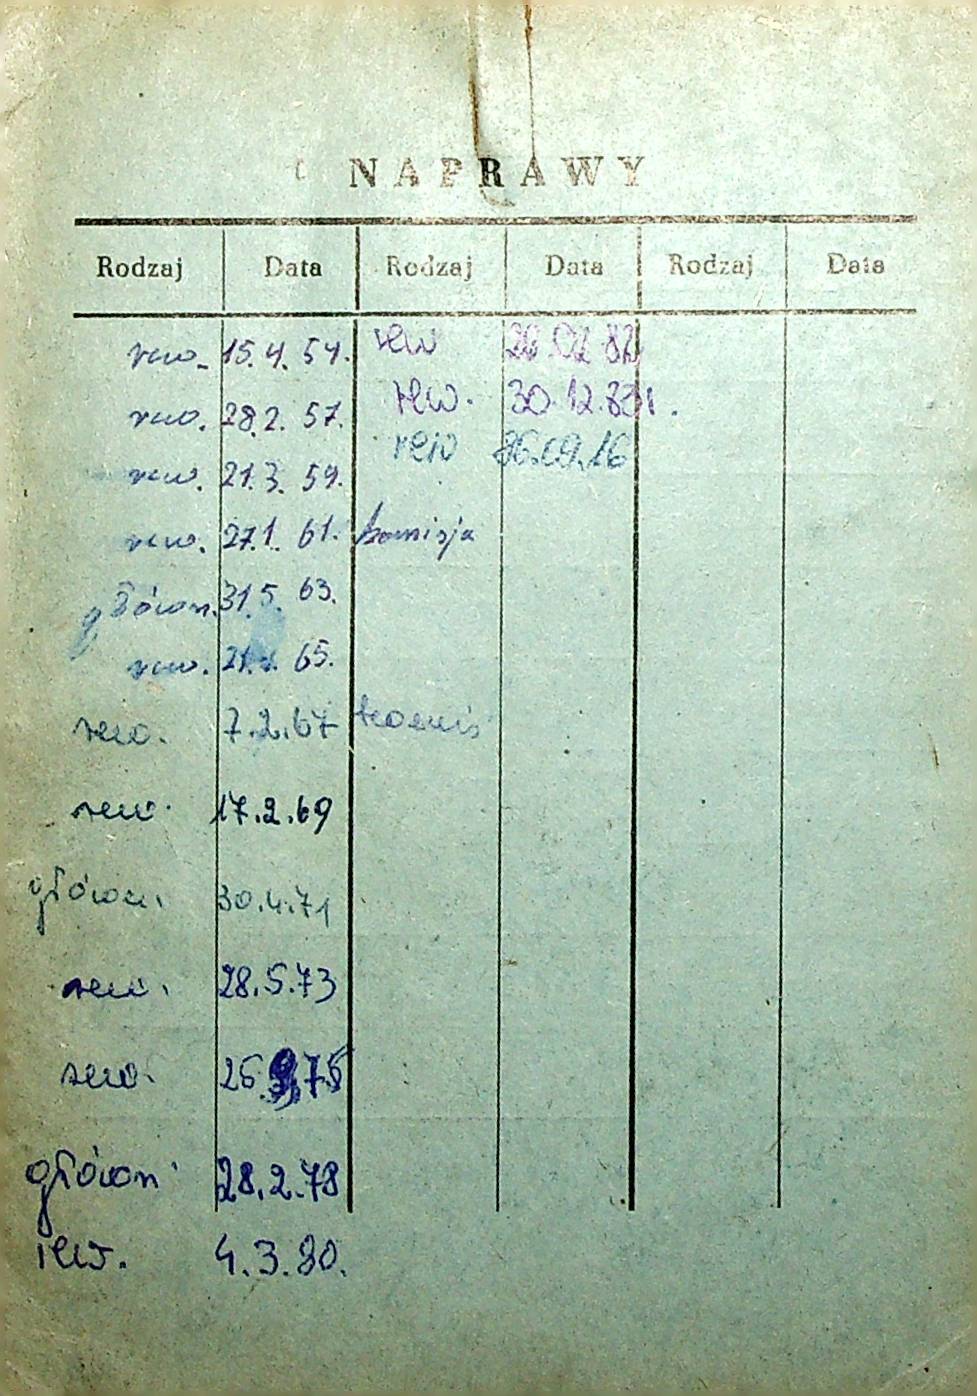 NAPRAWY
Rodzaj Data Rodzaj Data Rodzaj Data
rew. 15.4.54. rew 82
rew. 28.2.57. rew. 30.12.83r.
rew. 21.3.59. rew
rew. 27.1.61. komisja
główn. 31.5.63.
rew. 65.
rew. 7.2.67
rew. 17.2.69
główn. 30.4.71
rew. 28.5.73
rew. 75
główn 28.2.78
rew. 4.3.80.